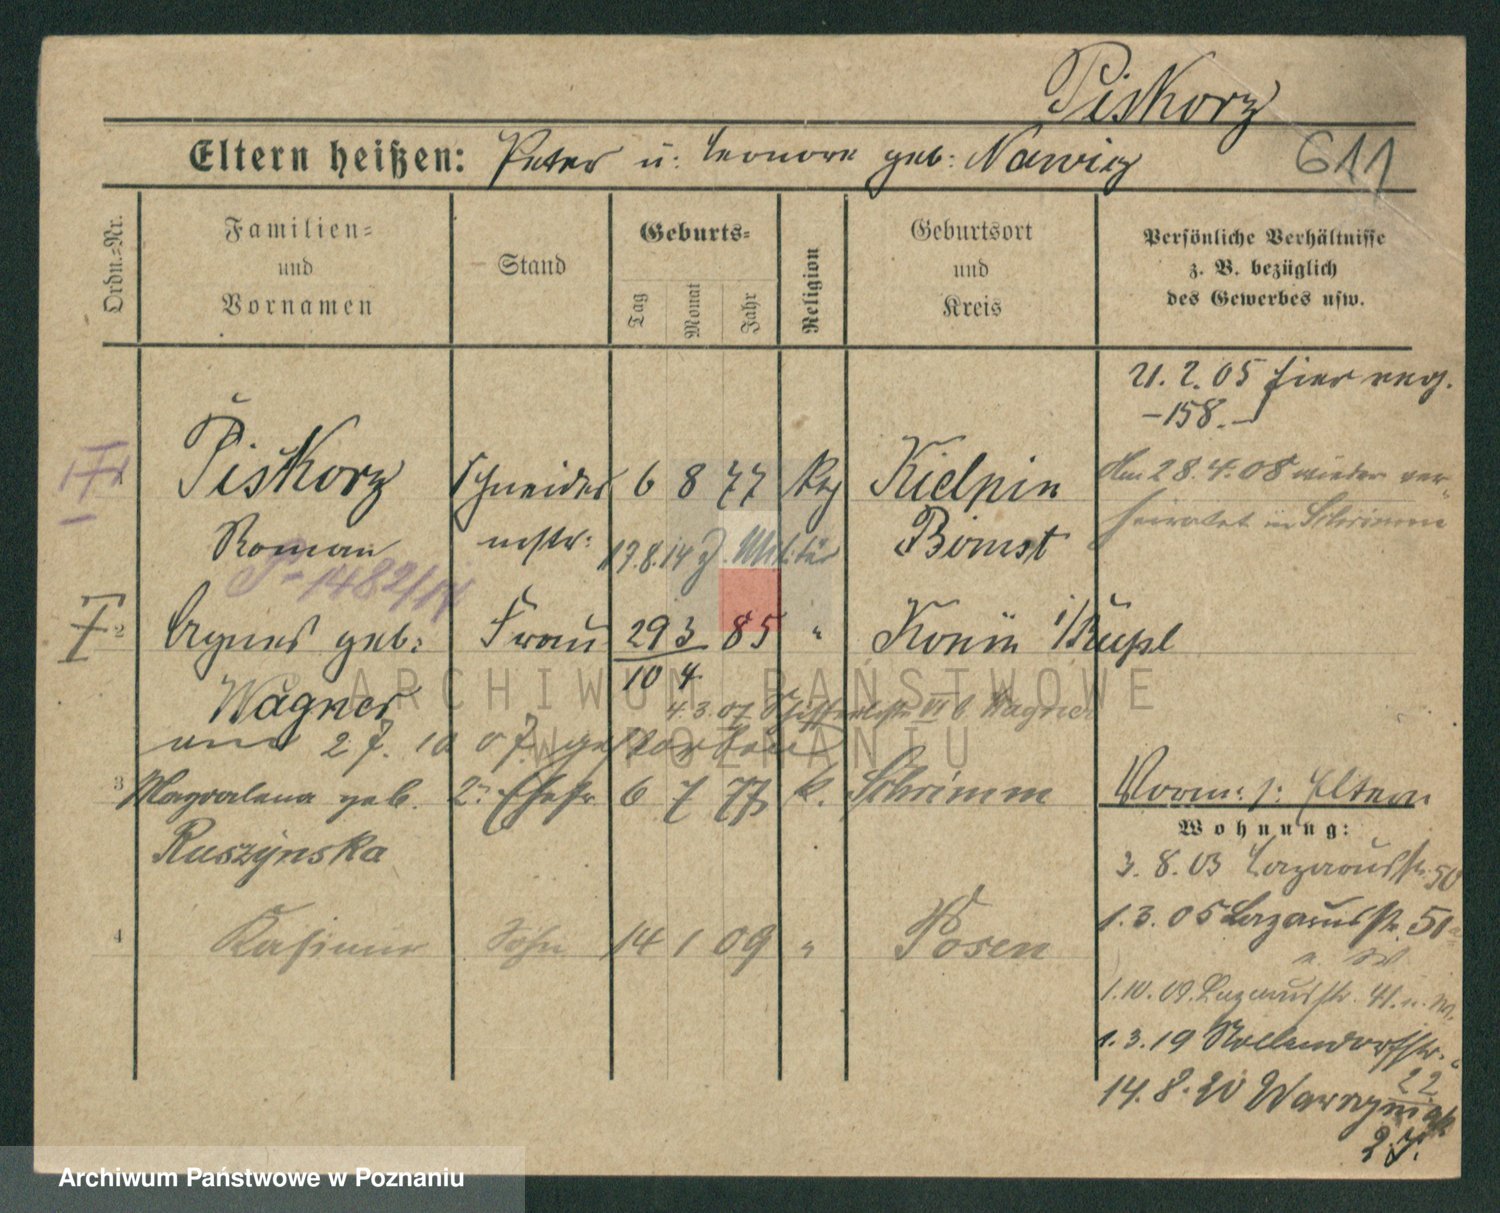 Piskorz
Eltern heißen: Peter u: Leonore geb: Nawig
611
Ordn.-Nr.
Familien-
und
Vornamen
Stand
Geburts-
Tag
Monat
Jahr
Religion
Geburtsort
und
Kreis
Persönliche Verhältnisse
z. B. bezüglich
des Gewerbes usw.
21.2.05 hier
-158.-
Piskorz Schneider 6 8 77 Kielpin
Roman mstr: 19.8.14 z. Militär Bomst
Am 28.4.08 wieder ver-
heiratet in Schrimm
P-1482/14
2 Agnes geb: Frau 29 3 85 "
10 4
Wagner
4.3.07 b. Wagner
am 27.10 07. gestorben
3 Magdalena geb. 2te Ehefr 6 7 77 k. Schrimm
Ruszynska
4 Kasimir Sohn 14 1 09 " Posen
Vorm: s: Eltern
Wohnung:
3.8.03 Lazarusstr. 50
1.3.05 Lazarusstr. 51
1.10.09. Lazarusstr. 41.
1.3.19 Nollendorfstr.
22
14.8.20
27.
ARCHIWUM PAŃSTWOWE
W POZNANIU
Archiwum Państwowe w Poznaniu